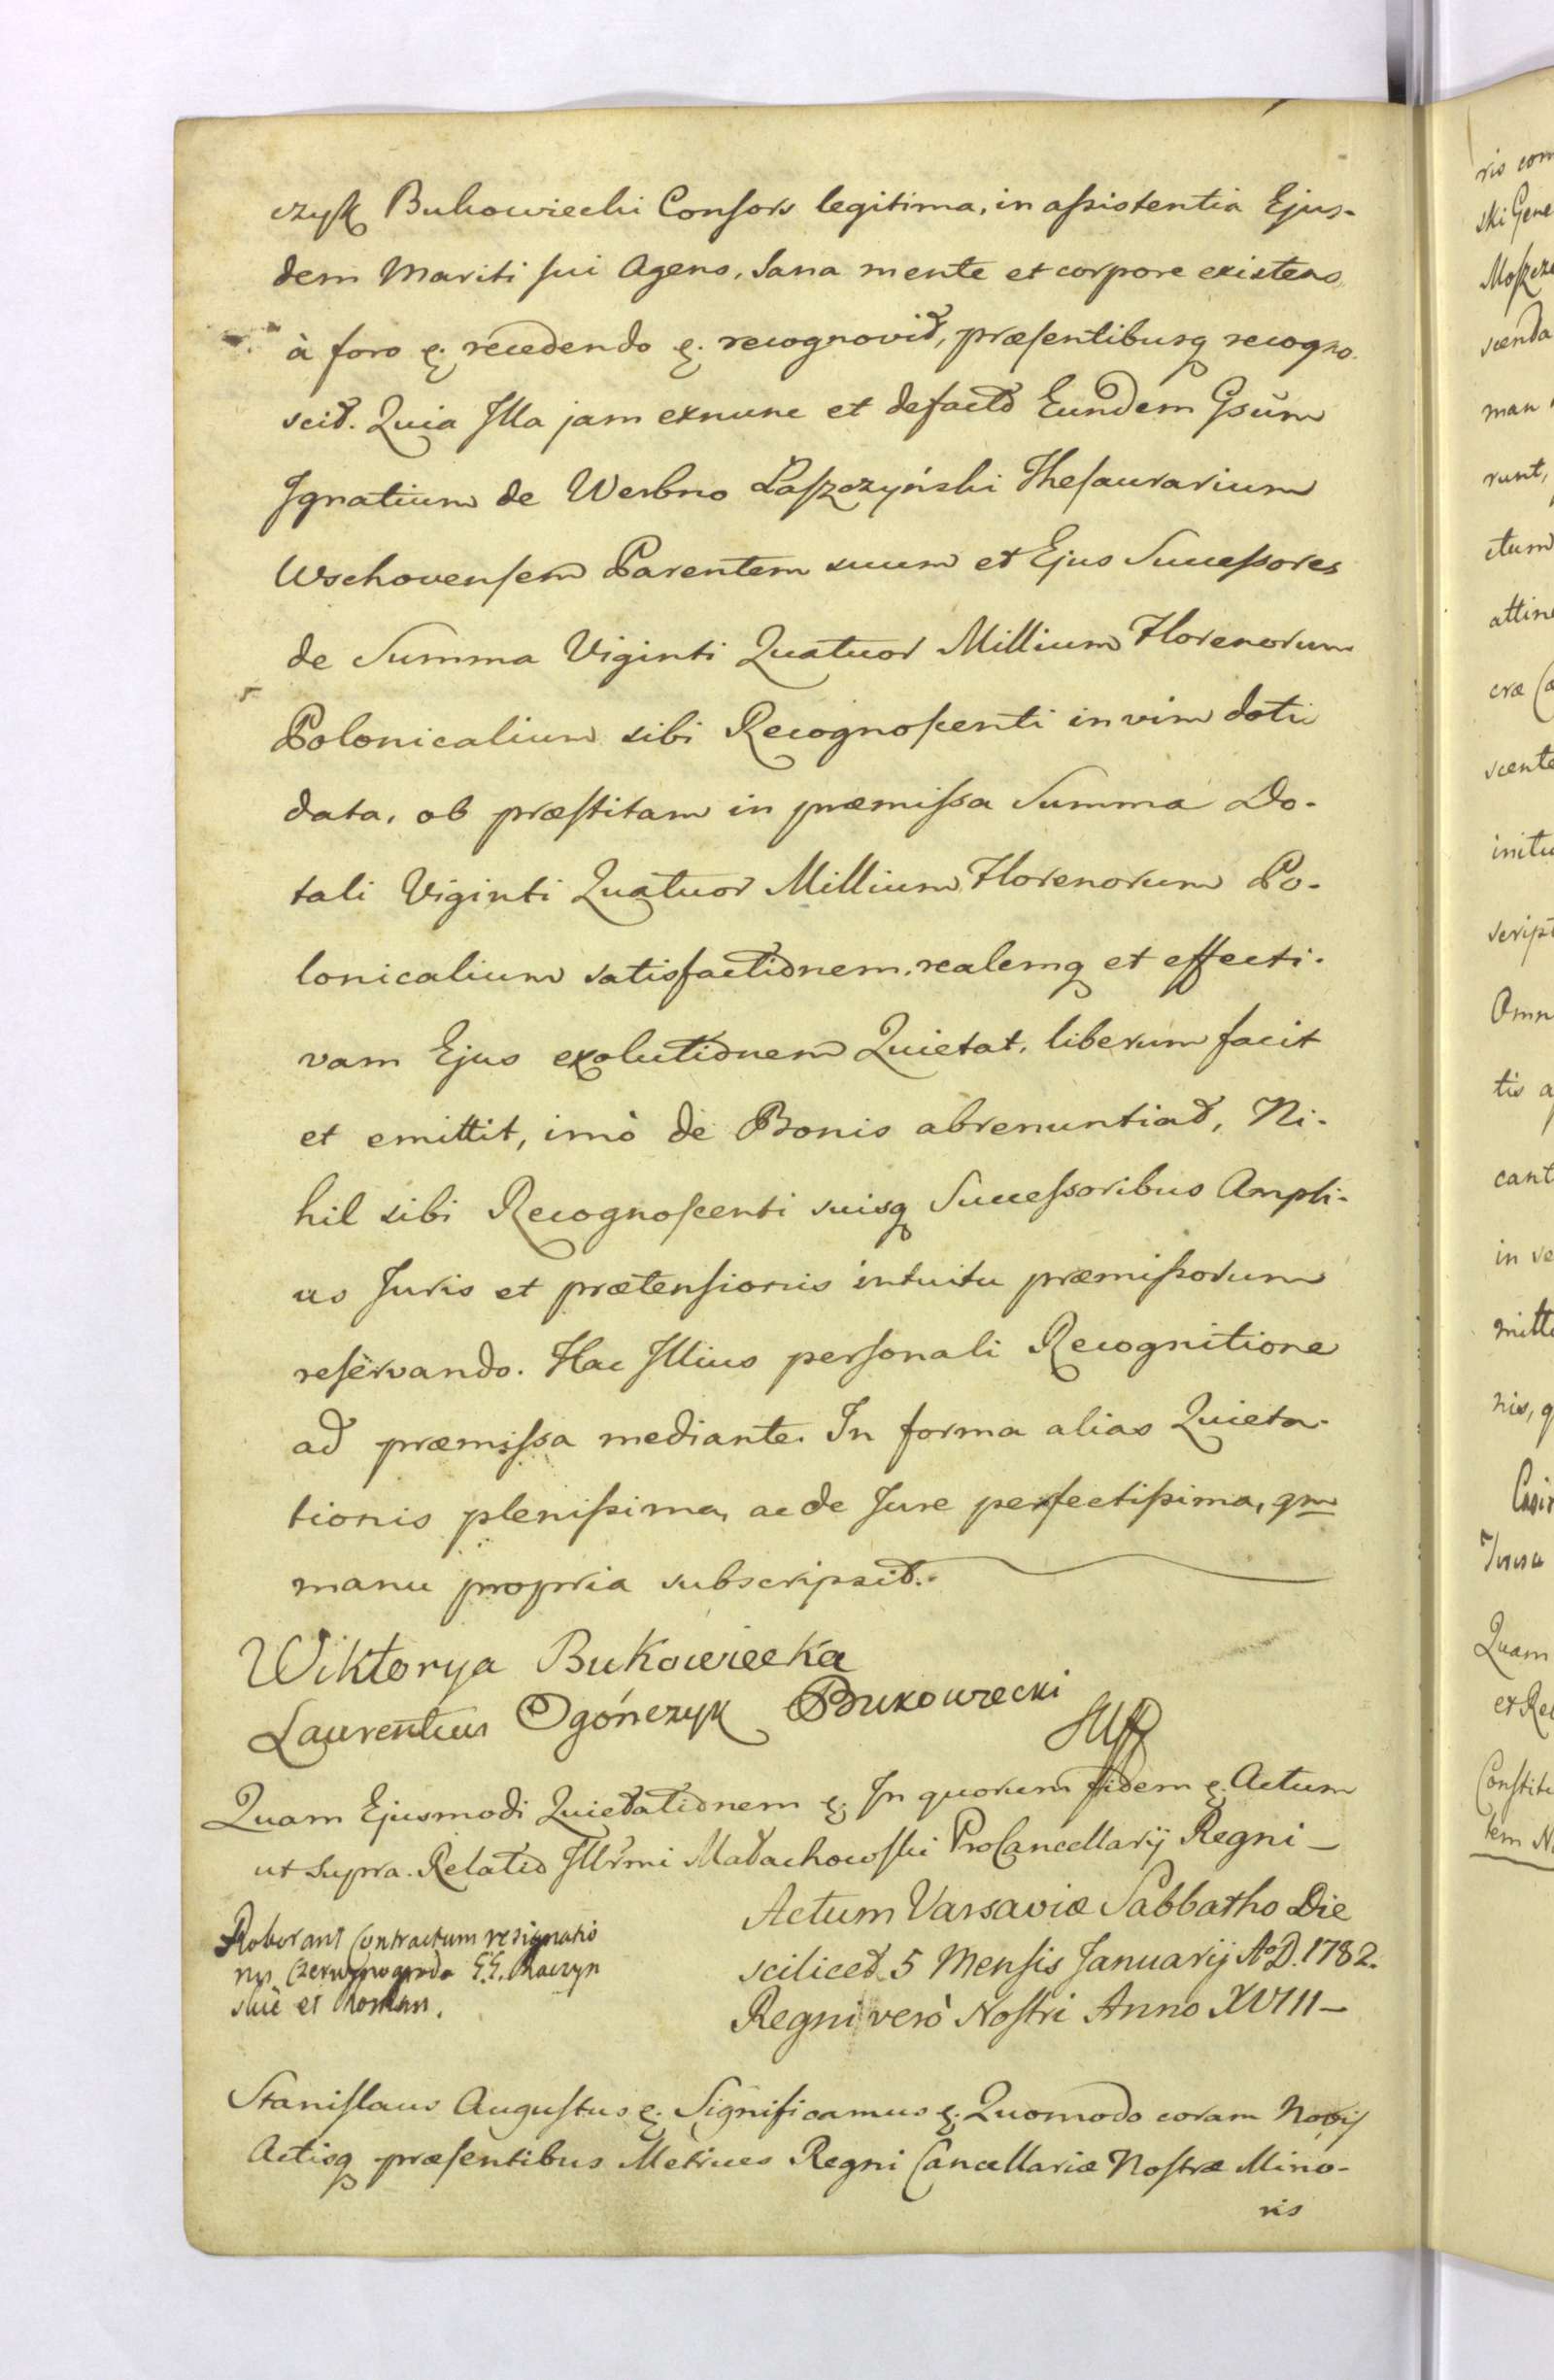 czyk Bukowiecki Consors legitima, in assistentia Ejus-
dem Mariti sui Agens, Sana mente et corpore existens
à foro &. recedendo &. recognovit, præsentibusq recogno-
scit. Quia Illa jam exnunc et defacto Eundem Gsum
Ignatium de Werbno Paszczyński Thesaurarium
Wschovensem Parentem suum et Ejus Successores
de Summa Viginti Quatuor Millium Florenorum
Polonicalium sibi Recognoscenti in vim dotis
data, ob præstitam in præmissa Summa Do-
tali Viginti Quatuor Millium Florenorum Po-
lonicalium satisfactionem, realemq et effecti-
vam Ejus exolutionem Quietat, liberum facit
et emittit, imò de Bonis abrenuntiat, Ni-
hil sibi Recognoscenti suisq Successoribus Ampli-
us Juris et prætensionis intuitu præmissorum
reservando. Hac Illius personali Recognitione
ad præmissa mediante. In forma alias Quieta-
tionis plenissima, ac de Jure perfectissima, qm
manu propria subscripsit.
Wiktorya Bukowiecka
Laurentius Ogończyk Bukowiecki
Quam Ejusmodi Quietationem &. In quorum fidem &. Actum
ut supra. Relatio Illrmi Małachowski ProCancellarij Regni –
Roborant Contractum resignatio
nis Czerwonogroda G.G. Raczyn
skie et Roman.
Actum Varsaviæ Sabbatho Die
scilicet 5 Mensis Januarij A°D. 1782.
Regni verò Nostri Anno XVIII –
Stanislaus Augustus &. Significamus &. Quomodo coram Nobis
Actisq præsentibus Metrices Regni Cancellariæ Nostræ Mino-
ris